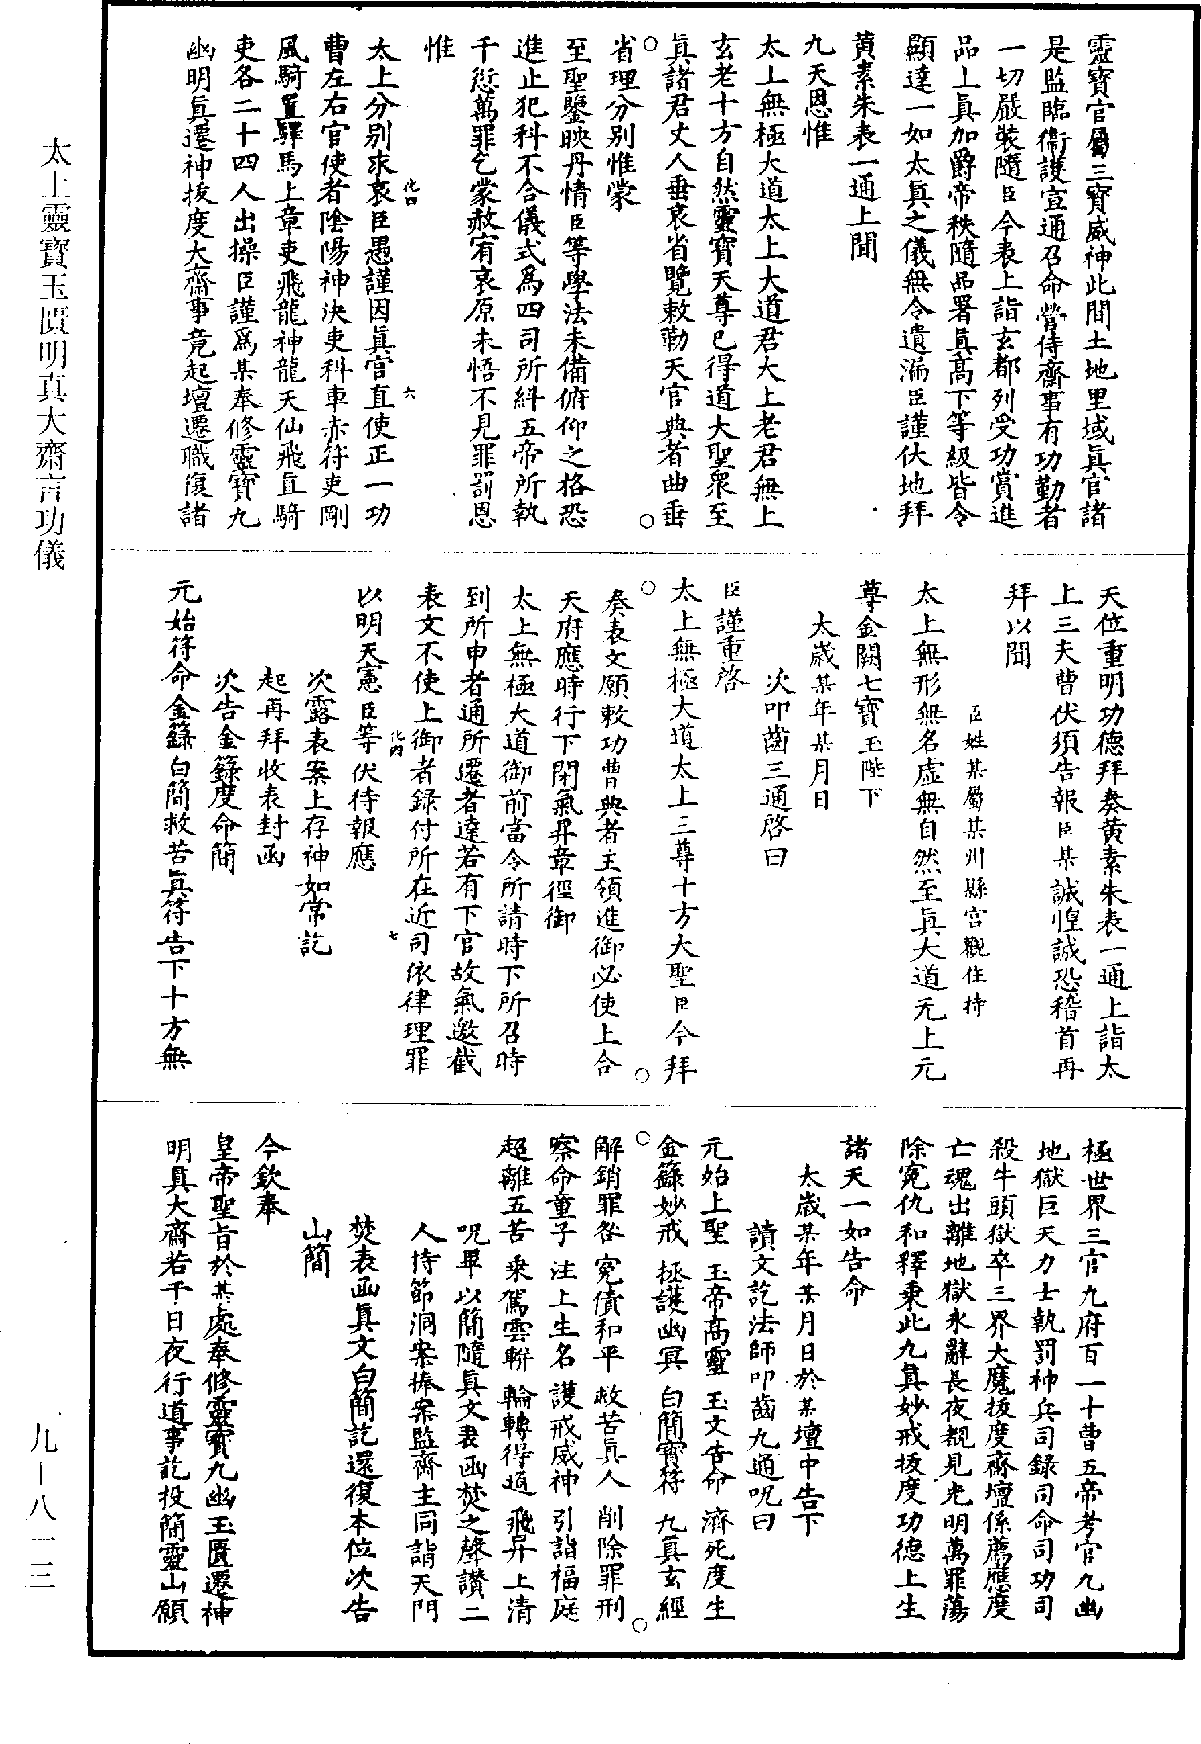 靈寶官屬三寶威神此間土地里域眞官諸
是監臨衞護宣通召命營侍齋事有功勤者
一切嚴裝隨臣今表上詣玄都列受功賞進
品上眞加爵帝秩隨品署眞高下等級皆令
顯達一如太眞之儀無令遺漏臣謹伏地拜
黄素朱表一通上聞
九天恩惟
太上無極大道太上大道君大上老君無上
玄老十方自然靈寶天尊已得道大聖衆至
眞諸君丈人垂哀省覽敕勒天官典者曲垂
省理分别惟蒙
至聖鑒映丹情臣等學法未備俯仰之格恐
進止犯科不合儀式爲四司所糾五帝所執
千愆萬罪乞蒙赦宥哀原未悟不見罪罰恩
惟
太上分别求哀臣愚謹因眞官直使正一功
曹左右官使者陰陽神決吏科車赤符吏剛
風騎置驛馬上章吏飛龍神龍天仙飛直騎
吏各二十四人出操臣謹爲某奉修靈寶九
幽明眞遷神拔度大齋事竟起壇遷職復諸
天位重明功德拜奏黄素朱表一通上詣太
上三夫曹伏須告報臣某誠惶誠恐稽首再
拜以聞
臣姓某屬某州縣宫觀住持
太上無形無名虚無自然至眞大道无上元
尊金闕七寶玉陛下
太歲某年某月日
次叩齒三通啓曰
臣謹重啓
太上無極大道太上三尊十方大聖臣今拜
奏表文願敕功曹典者主領進御必使上合
天府應時行下閉氣昇章徑御
太上無極大道御前當令所請時下所召時
到所申者通所遷者達若有下官故氣邀截
表文不使上御者録付所在近司依律理罪
以明天憲臣等伏待報應
次露表案上存神如常訖
起再拜收表封函
次告金籙度命簡
元始符命金籙白簡救苦眞符告下十方無
極世界三官九府百一十曹五帝考官九幽
地獄巨天力士執罰神兵司録司命司功司
殺牛頭獄卒三界大魔拔度齋壇係薦應度
亡魂出離地獄永辭長夜覩見光明萬罪蕩
除寃仇和釋乗此九眞妙戒拔度功德上生
諸天一如告命
太歲某年某月日於某壇中告下
讀文訖法師叩齒九通呪曰
元始上聖 玉帝高靈 玉文告命 濟死度生
金籙妙戒 拯護幽冥 白簡寶符 九眞玄經
解銷罪咎 寃債和平 救苦眞人 削除罪刑
察命童子 注上生名 護戒威神 引詣福庭
超離五苦 乗駕雲軿 輪轉得道 飛昇上清
呪畢以簡隨眞文表函焚之聲讚二
人持節洞案捧案監齋主同詣天門
焚表函眞文白簡訖還復本位次告
山簡
今欽奉
皇帝聖旨於某處奉修靈寶九幽玉匱遷神
明眞大齋若干日夜行道事訖投簡靈山願
太上靈寶玉匱明真大齋言功儀
九一八一三
化口
六
化内
七